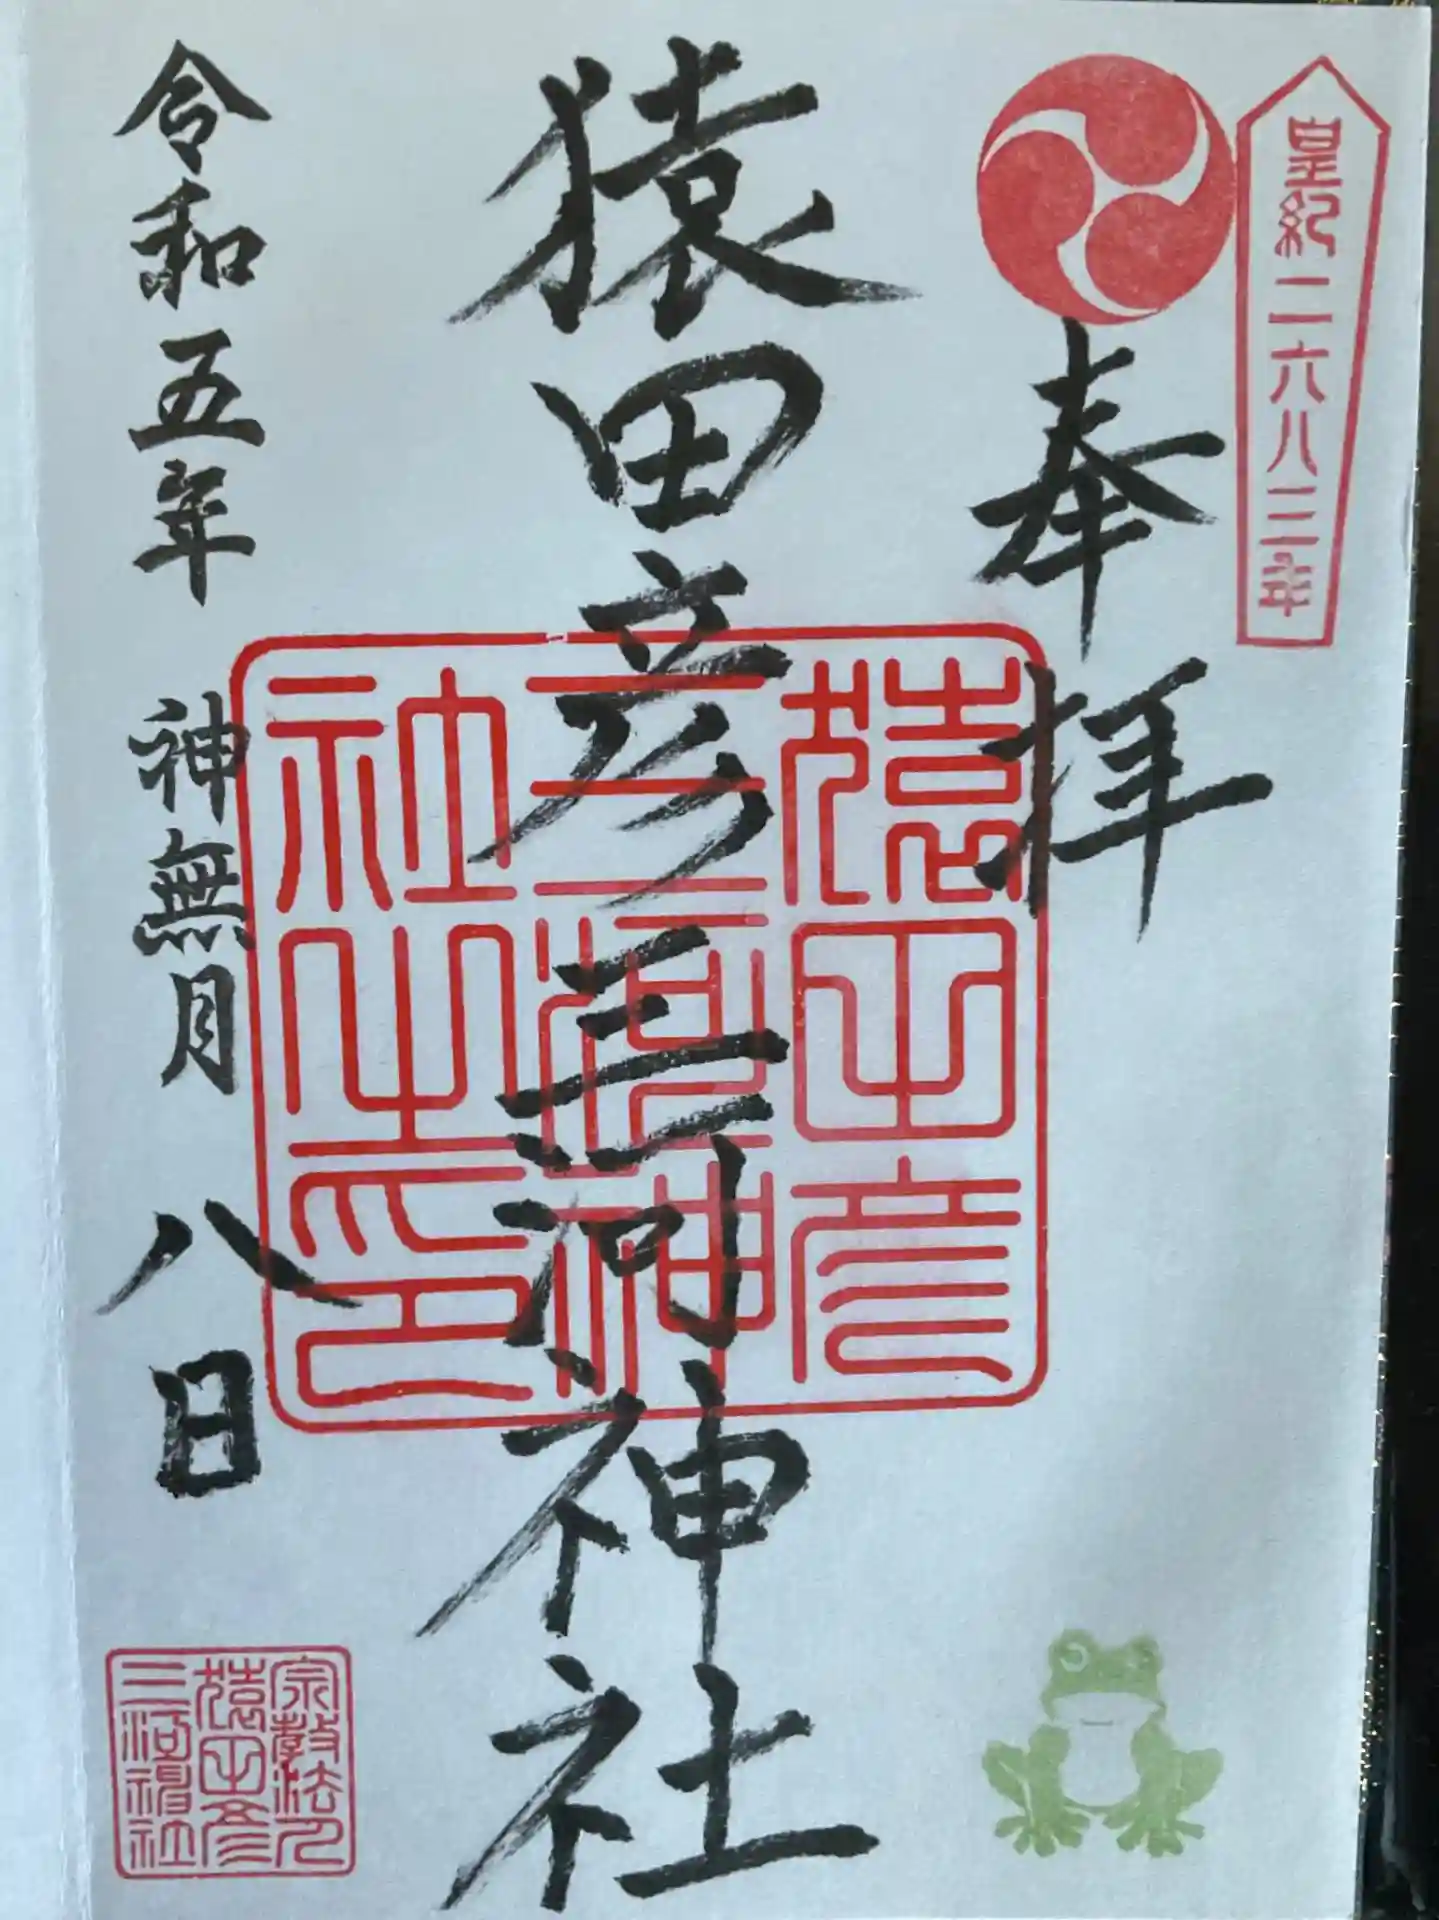 皇紀二六八三年
奉拝
猿田彦三河神社
猿田彦
三河神
社之印
令和五年 神無月 八日
宗教法人
猿田彦
三河神社